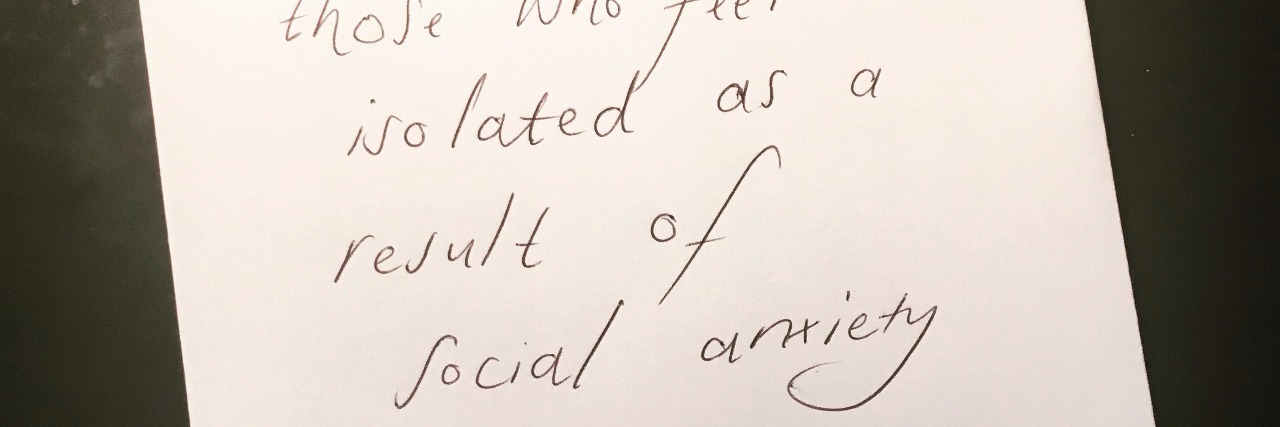 those who feel
isolated as a
result of
social anxiety